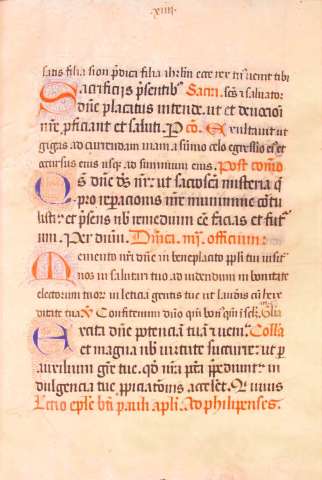 .xiiii.
satis filia sion p̄dica filia ihrl̄m ecce rex tuꝰ uenit tibi
Sacrificiis p̄sentibꝰ Sacri. scs̄ ⁊ saluator
dn̄e placatus intende. ut et deuocioni
nr̄e proficiant et saluti. P cō. Exultauit ut
gigas ad currendam uiam a sūmo celo egressio eiꝰ et
occursus eius usq̄ ad summum eius. Post cōmō
Qs dn̄e ds̄ nr̄: ut sacroscā misteria q̄
pro reparacionis nr̄e munimine cōtu
listi: et p̄sens nb̄ remedium eē facias et fut
um. Per dnm̄. Dn̄ica. iij. officium:
Memento nr̄i dn̄e in beneplacito ppl̄i tui uisita
nos in salutari tuo. ad uidendum in bonitate
electorum tuoꝝ in leticia gentis tue ut lauderis cū here
ditate tua V Confitemini dn̄o qm̄ bonꝰ qm̄ ī sc̄l. Glia
Excita dn̄e potenciā tuā ⁊ ueni. Collā
et magna nb̄ uirtute succurre: ut p
auxilium grē tue. qd̄ nr̄a pctā p̄pediunt: in
dulgencia tue ppiciatonis acceleret. Q̄ uiuis
Lectio epl̄e bt̄i pauli apl̄i. Ad philipenses.